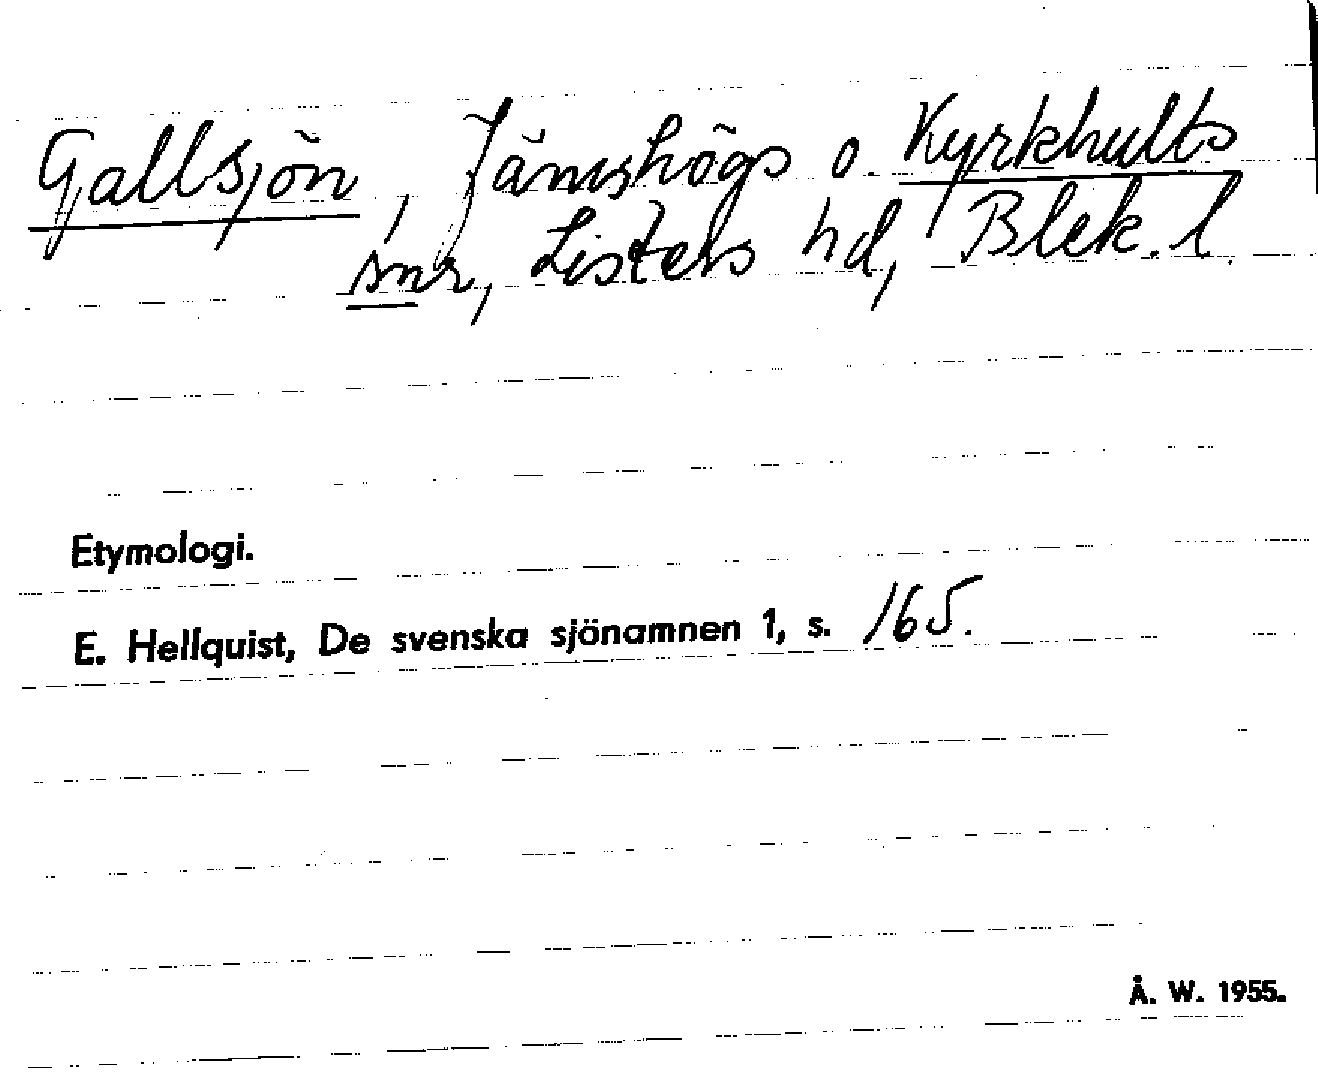 Gallsjön, Jämshögs o. Kyrkhults
snr, Listers hd, Blek. l.
Etymologi.
E. Hellquist, De svenska sjönamnen 1, s. 165.
Å. W. 1955.